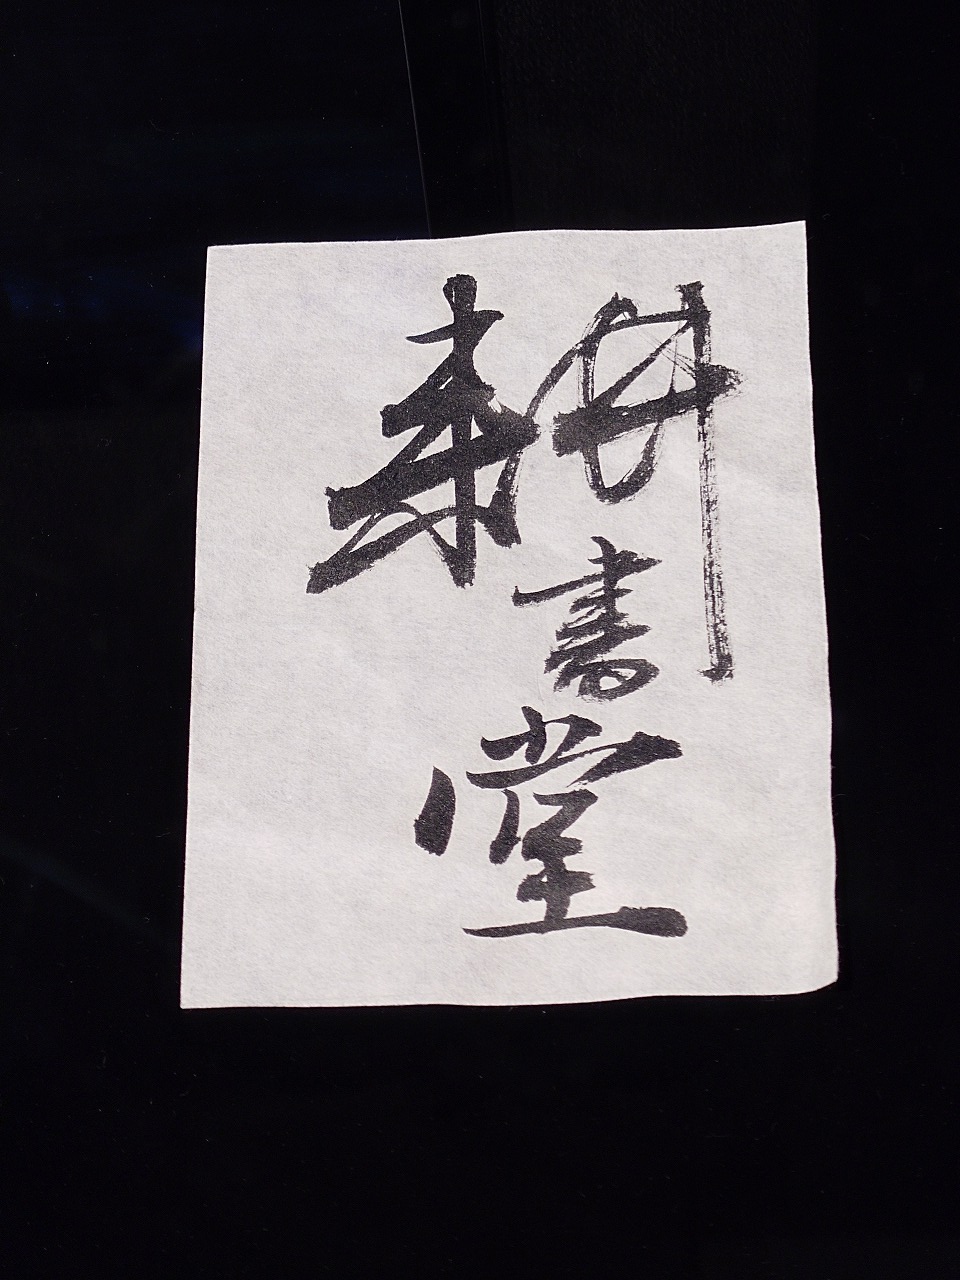 耕書堂